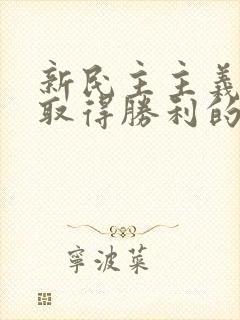 新民主主義
取得勝利的
寧波菜